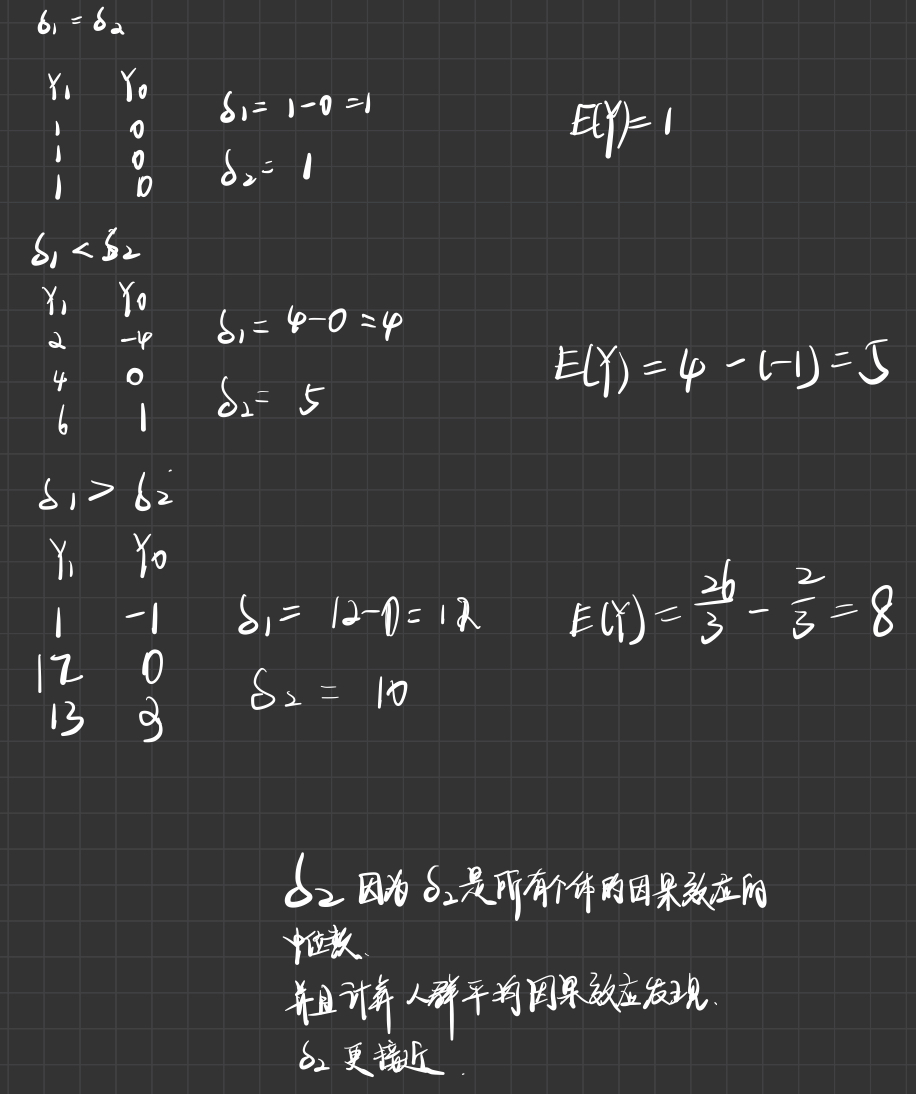 δ₁ = δ₂
Y₁ Y₀
1 0
1 0
1 0
δ₁ = 1-0 = 1
δ₂ = 1
E(Y) = 1
δ₁ < δ₂
Y₁ Y₀
2 -4
4 0
6 1
δ₁ = 4-0 = 4
δ₂ = 5
E(Y) = 4 - (-1) = 5
δ₁ > δ₂
Y₁ Y₀
1 -1
12 0
13 3
δ₁ = 12-0 = 12
δ₂ = 10
E(Y) = 26/3 - 2/3 = 8
δ₂ 因为 δ₂是所有个体的因果效应的
中位数.
并且计算人群平均因果效应发现.
δ₂ 更接近.